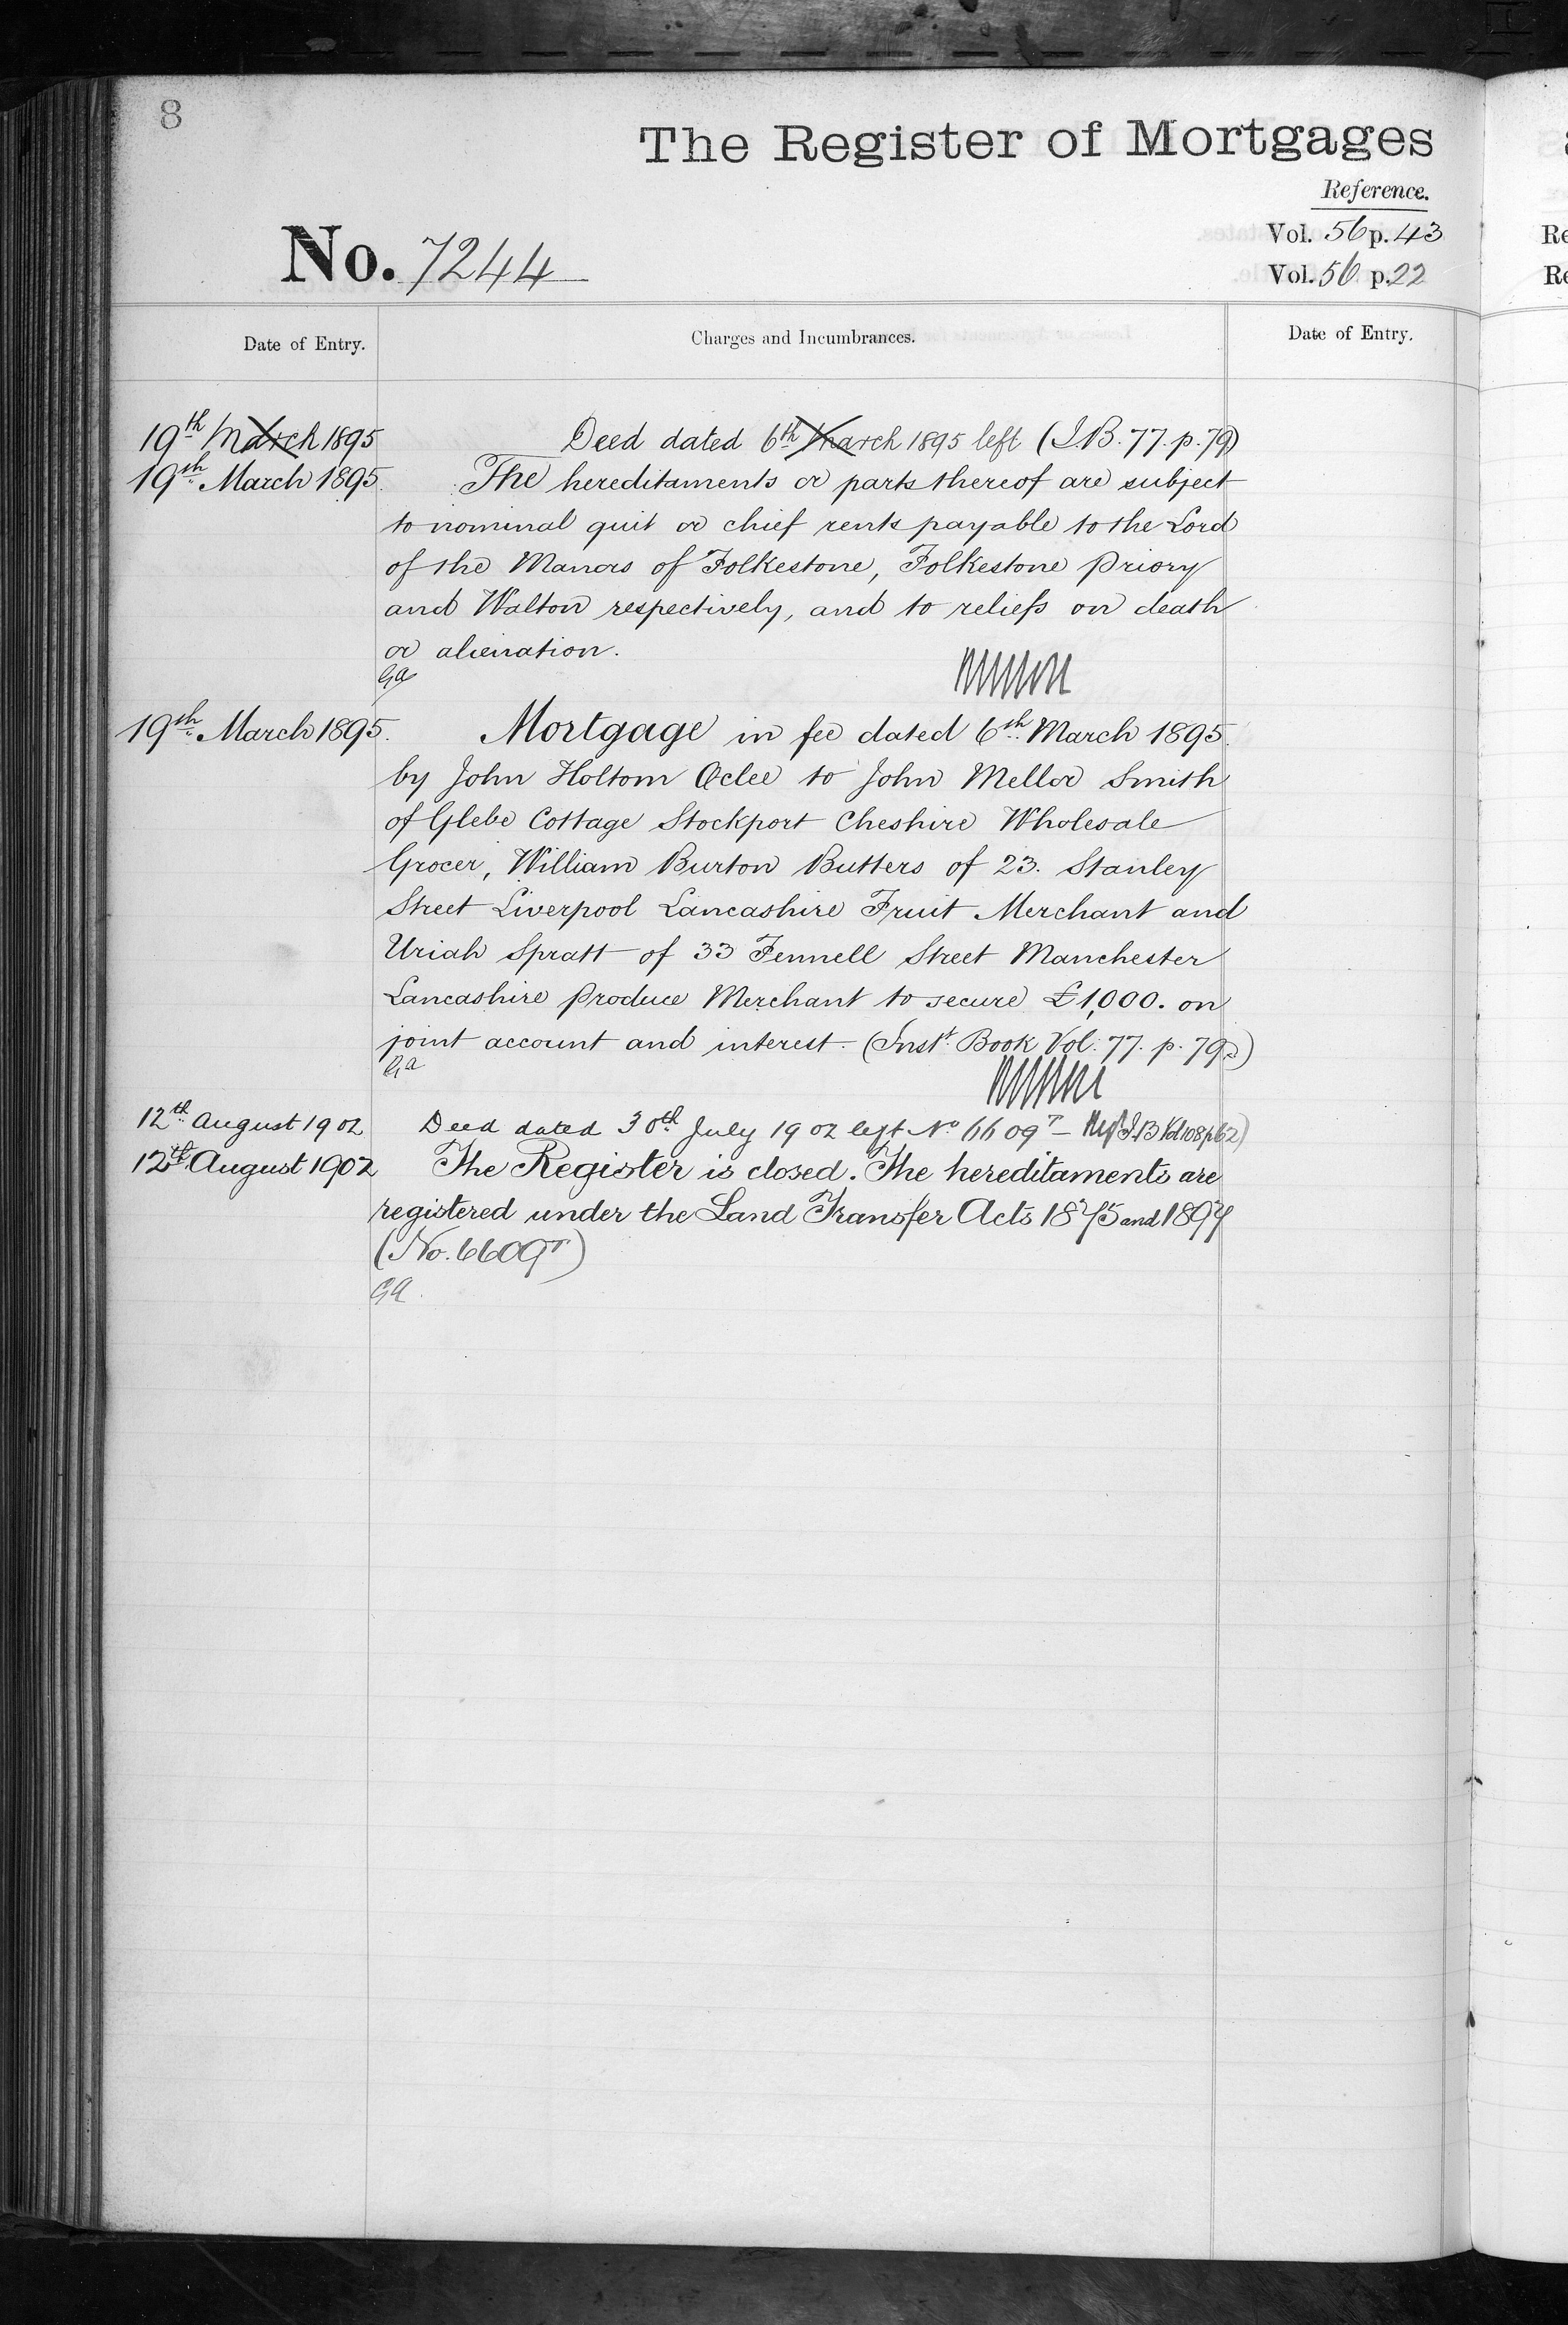 8
The Register of Mortgages
Reference.
No. 7244
Vol. 56 p. 43
Vol. 56 p. 22
Date of Entry.
Charges and Incumbrances.
Date of Entry.
19th March 1895
Deed dated 6th March 1895 left (I.B. 77. p. 79)
19th March 1895.
The hereditaments or parts thereof are subject
to nominal quit or chief rents payable to the Lord
of the Manors of Folkestone, Folkestone Priory
and Walton respectively, and to reliefs on death
or alienation.
GA
19th March 1895.
Mortgage in fee dated 6th March 1895.
by John Holtom Oclee to John Mellor Smith
of Glebe Cottage Stockport Cheshire Wholesale
Grocer, William Burton Butters of 23. Stanley
Street Liverpool Lancashire Fruit Merchant and
Uriah Spratt of 33 Fennell Street Manchester
Lancashire Produce Merchant to secure £1,000. on
joint account and interest. (Inst. Book Vol. 77. p. 79.)
GA
12th August 1902
Deed dated 30th July 1902 left No 6609T – I.B Vol 108 p 62)
12th August 1902
The Register is closed. The hereditaments are
registered under the Land Transfer Acts 1875 and 1897
(No. 6609T)
GA.
Re
Re